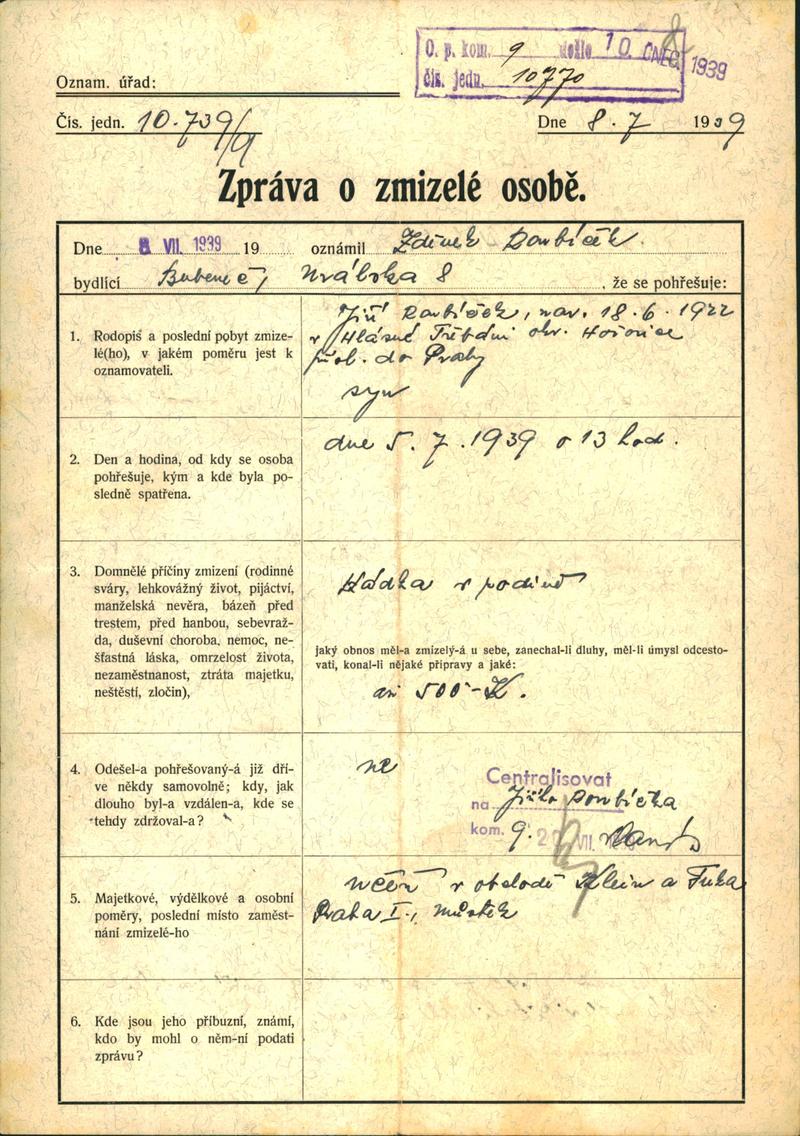 O. p. kom. 9 došlo 10. ČNEC. 1939
čís. jedn. 10770
Oznam. úřad:
Čís. jedn. 10.739/9
Dne 8.7 1939
Zpráva o zmizelé osobě.
Dne 8. VII. 1939 19 oznámil Zdenek Roubíček
bydlící Bubeneč, 8 , že se pohřešuje:
1. Rodopis a poslední pobyt zmize-
lé(ho), v jakém poměru jest k
oznamovateli.
Jiří Roubíček, nar. 18.6.1922
v Hlásné Třebáni okr. Hořovice
přísl. do Prahy
syn
2. Den a hodina, od kdy se osoba
pohřešuje, kým a kde byla po-
sledně spatřena.
dne 5.7.1939 o 13 hod.
3. Domnělé příčiny zmizení (rodinné
sváry, lehkovážný život, pijáctví,
manželská nevěra, bázeň před
trestem, před hanbou, sebevraž-
da, duševní choroba, nemoc, ne-
šťastná láska, omrzelost života,
nezaměstnanost, ztráta majetku,
neštěstí, zločin),
Hádka v rodině
jaký obnos měl-a zmizelý-á u sebe, zanechal-li dluhy, měl-li úmysl odcesto-
vati, konal-li nějaké přípravy a jaké:
asi 500-K.
4. Odešel-a pohřešovaný-á již dří-
ve někdy samovolně; kdy, jak
dlouho byl-a vzdálen-a, kde se
tehdy zdržoval-a?
ne
Centralisovat
na Jiřího Roubíčka
kom. 9. VII.
5. Majetkové, výdělkové a osobní
poměry, poslední místo zaměst-
nání zmizelé-ho
učeň v obchodě Klein a Fuka
Praha I., Můstek
6. Kde jsou jeho příbuzní, známí,
kdo by mohl o něm-ní podati
zprávu?